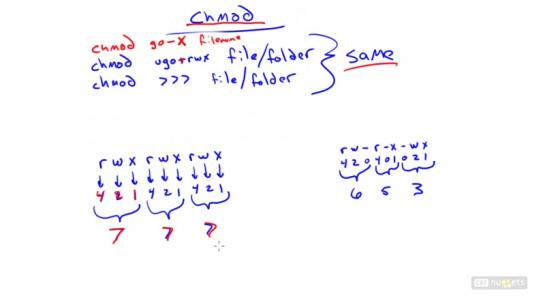 chmod
chmod go-x filename
chmod ugo+rwx file/folder
chmod >>> file/folder
same
r w x r w x r w x
4 2 1 4 2 1 4 2 1
7 7 7
r w - r - x - w x
4 2 0 4 0 1 0 2 1
6 5 3
cbt nuggets